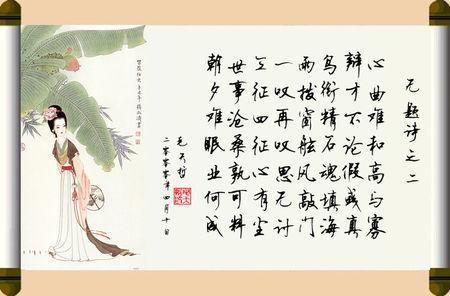 无题诗之二
心曲难和高与寡
辩才不论假或真
鸟衔精石魂填海
雨拔窗舷风敲门
一叹再叹思无计
三征四征心有尘
世事沧桑孰可料
朝夕难眠业何成
毛天哲
年四月十日